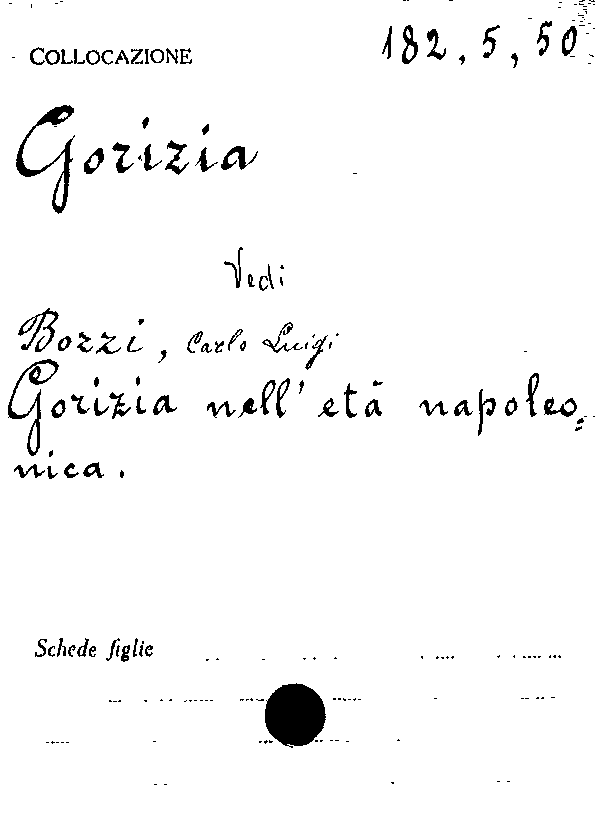 COLLOCAZIONE 182, 5, 50
Gorizia
Vedi
Bozzi, Carlo Luigi
Gorizia nell' età napoleo=
nica.
Schede figlie